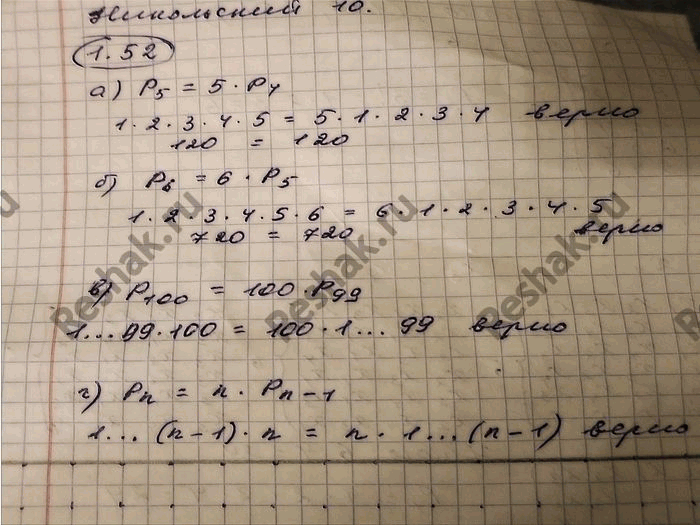 Никольский 10.
1.52
а) P₅ = 5 · P₄
1 · 2 · 3 · 4 · 5 = 5 · 1 · 2 · 3 · 4 верно
120 = 120
б) P₆ = 6 · P₅
1 · 2 · 3 · 4 · 5 · 6 = 6 · 1 · 2 · 3 · 4 · 5
720 = 720 верно
в) P₁₀₀ = 100 · P₉₉
1...99 · 100 = 100 · 1...99 верно
г) Pₙ = n · Pₙ₋₁
1...(n-1) · n = n · 1...(n-1) верно
Reshak.ru
Reshak.ru
Reshak.ru